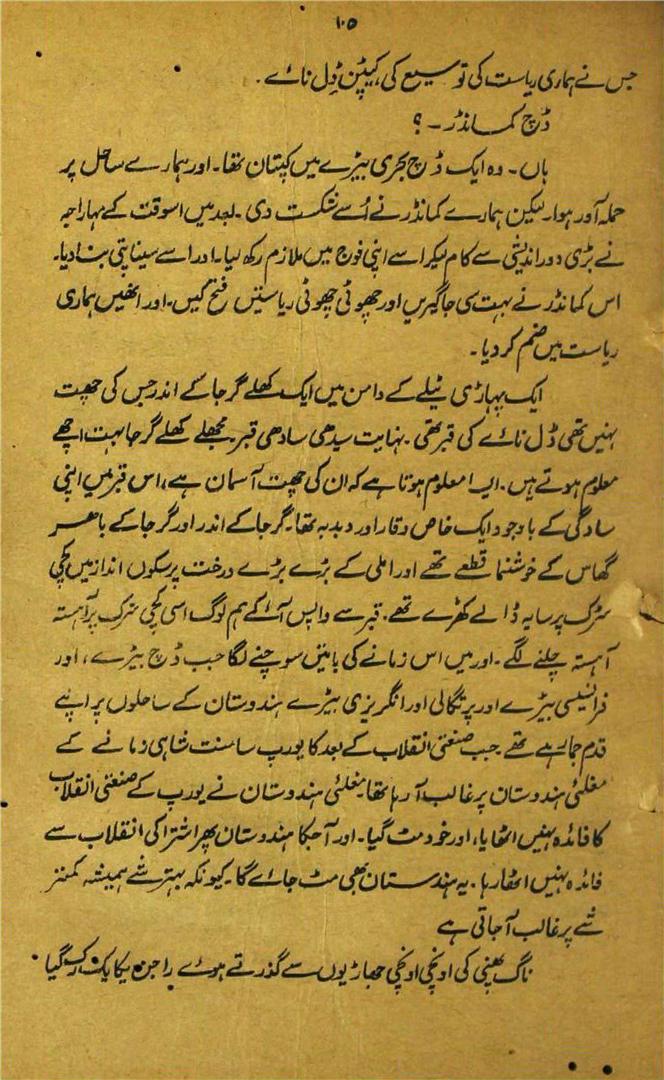 ۱۰۵
جس نے ہماری ریاست کی توسیع کی، کیپٹن ڈِل نائے۔
ڈچ کمانڈر ۔ ؟
ہاں۔ وہ ایک ڈچ بحری بیڑے میں کپتان تھا۔ اور ہمارے ساحل پر
حملہ آور ہوا۔ لیکن ہمارے کمانڈر نے اُسے شکست دی۔ بعد میں اسوقت کے مہاراجہ
نے بڑی دوراندیشی سے کام لیکر اسے اپنی فوج میں ملازم رکھ لیا۔ اور اسے سیناپتی بنا دیا۔
اس کمانڈر نے بہت سی جاگیریں اور چھوٹی چھوٹی ریاستیں فتح کیں۔ اور انھیں ہماری
ریاست میں ضم کر دیا۔
ایک پہاڑی ٹیلے کے دامن میں ایک کھلے گرجا کے اندر جس کی چھت
نہیں تھی ڈل نائے کی قبر تھی۔ نہایت سیدھی سادھی قبر۔ مجھلے کھلے گرجا بہت اچھے
معلوم ہوتے ہیں۔ ایسا معلوم ہوتا ہے کہ ان کی چھت آسمان ہے، اس قبر میں اپنی
سادگی کے باوجود ایک خاص وقار اور دبدبہ تھا۔ گرجا کے اندر اور گرجا کے باھر
گھاس کے خوشنما قطعے تھے اور املی کے بڑے بڑے درخت پرسکوں انداز میں کچی
سڑک پر سایہ ڈالے کھڑے تھے۔ قبر سے واپس آ کے ہم لوگ اسی کچی سڑک پر آہستہ
آہستہ چلنے لگے۔ اور میں اس زمانے کی باتیں سوچنے لگا جب ڈچ بیڑے، اور
فرانسیسی بیڑے اور پرتگالی اور انگریزی بیڑے ہندوستان کے ساحلوں پر اپنے
قدم جما رہے تھے۔ جب صنعتی انقلاب کے بعد کا یورپ سامنت شاہی زمانے کے
مغلئی ہندوستان پر غالب آ رہا تھا۔ مغلئی ہندوستان نے یورپ کے صنعتی انقلاب
کا فائدہ نہیں اٹھایا، اور خود مٹ گیا۔ اور آجکا ہندوستان پھر اشتراکی انقلاب سے
فائدہ نہیں اٹھا رہا۔ یہ ہندستان بھی مٹ جائے گا۔ کیونکہ بہتر شے ہمیشہ کمتر
شے پر غالب آ جاتی ہے
ناگ پھنی کی اونچی اونچی جھاڑیوں سے گذرتے ہوئے راجن یکایک رک گیا۔